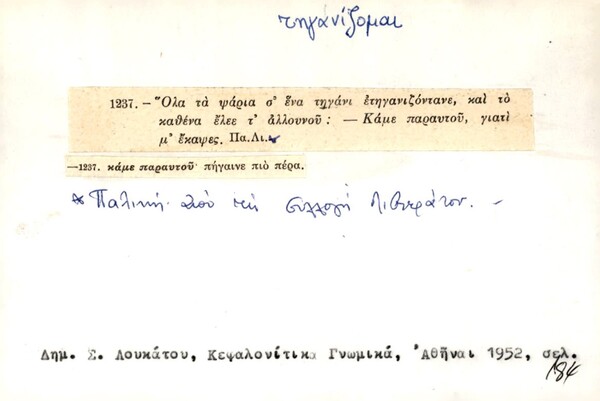 τηγανίζομαι
1237. – Ὅλα τὰ ψάρια σ' ἕνα τηγάνι ἐτηγανιζόντανε, καὶ τὸ
καθένα ἔλεε τ' ἀλλουνοῦ : — Κάμε παραυτοῦ, γιατὶ
μ' ἔκαψες. Πα.Λι.
—1237. κάμε παραυτοῦ· πήγαινε πιὸ πέρα.
* Παλικὴ. ἀπὸ τὴ συλλογὴ Λιβιεράτου. –
Δημ. Σ. Λουκάτου, Κεφαλονίτικα Γνωμικά, Ἀθῆναι 1952, σελ.
184